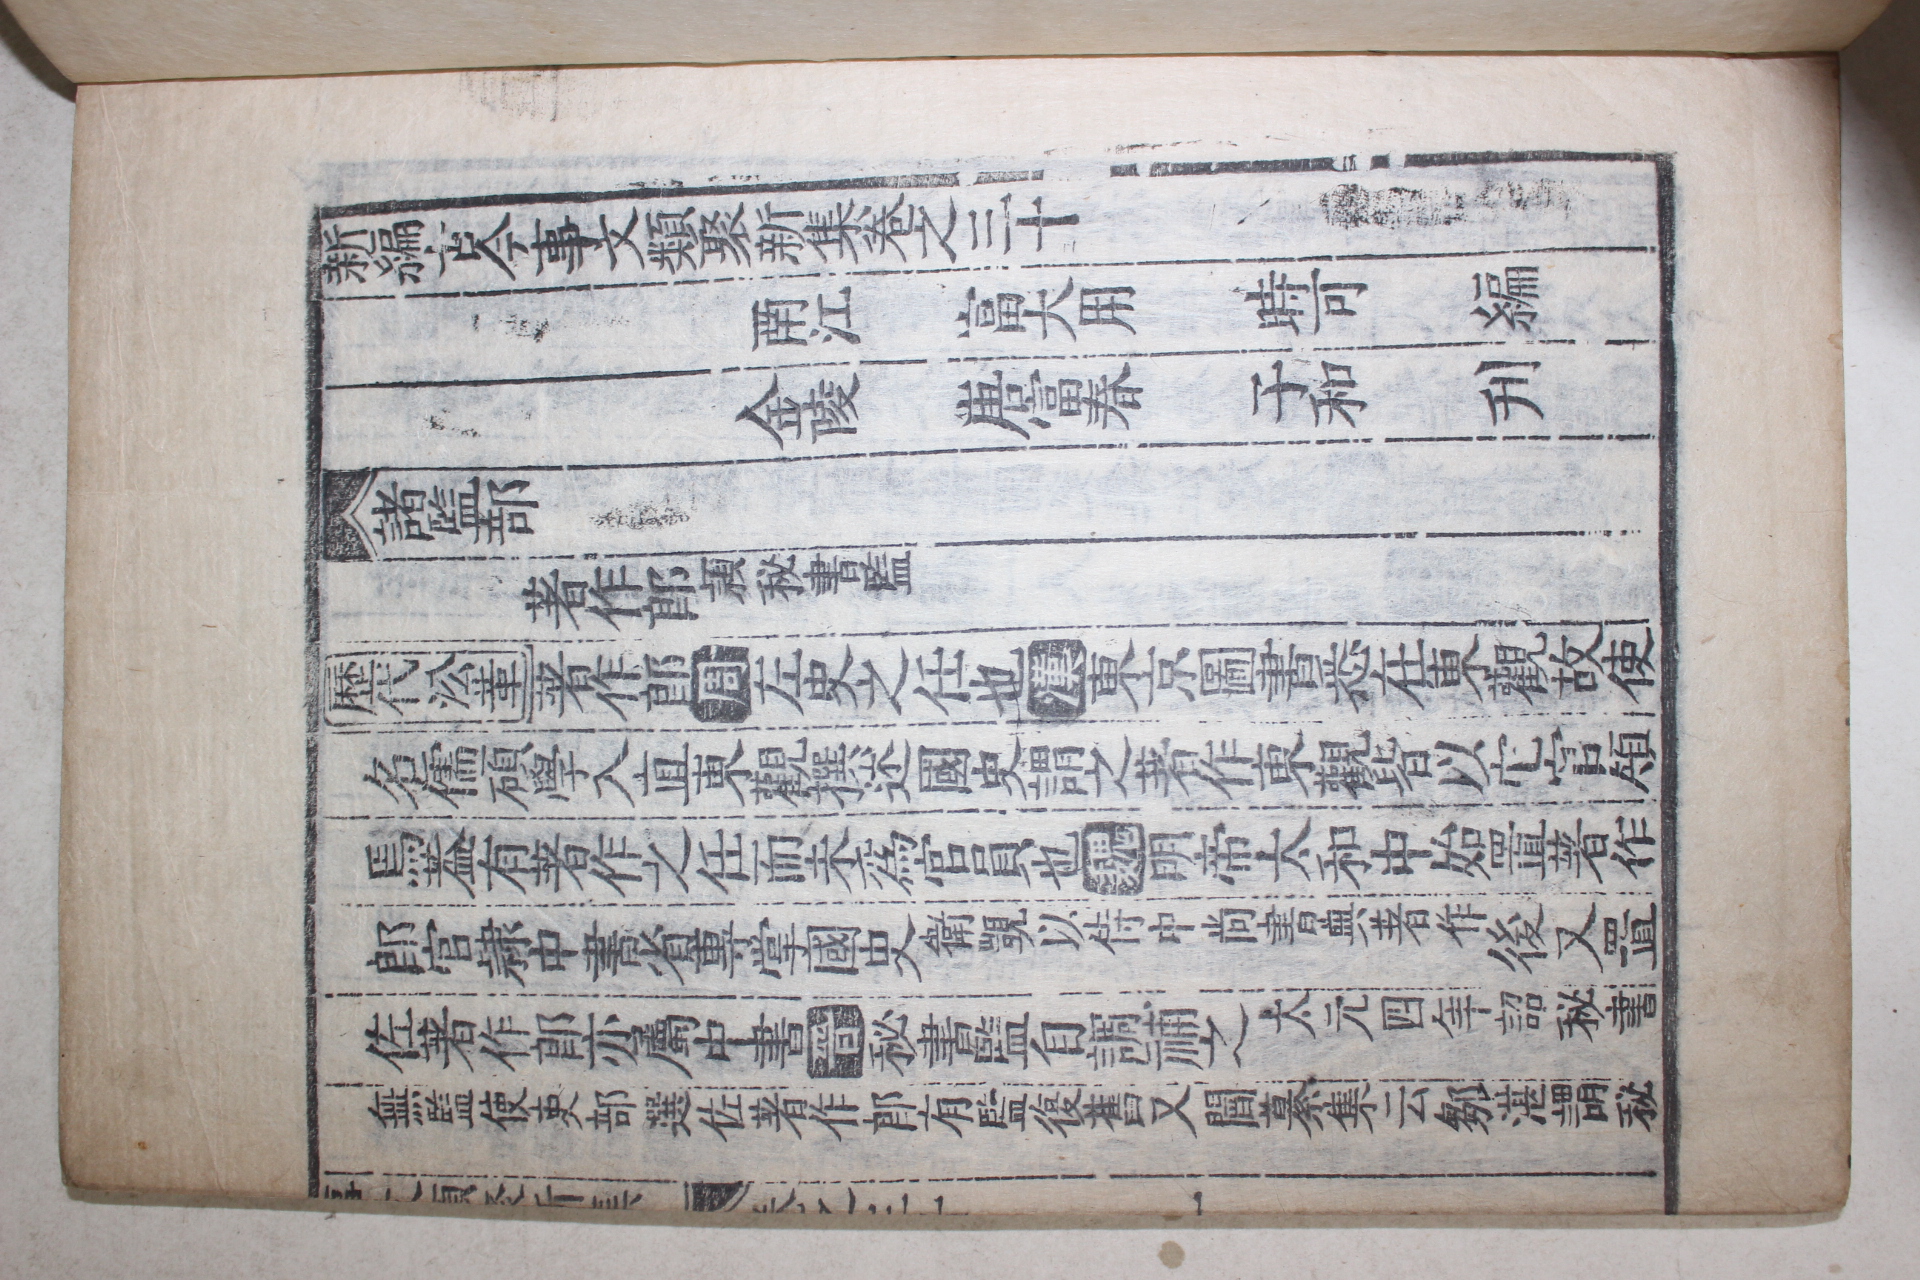 新編古今事文類聚新集卷之三十
南江 富大用 時可 編
金陵 唐富春 子和 刋
諸監部
著作郎 頴秘書監
歷代沿革 著作郎周左史之任也漢東京圖書悉在東觀故使
名儒碩學入直東觀撰述國史謂之著作東觀皆以它官領
焉葢有著作之任而未爲官員也魏明帝太和中始置著作
郎官隷中書省專掌國史 衛覬以侍中尚書典著作 後又置
佐著作郎亦屬中書晉秘書監自調補之 太元四年詔秘書
無監使吏部選佐著作郎有監復舊又閻纂集云鄒湛謂秘
事文類聚新集 卷之三十 一